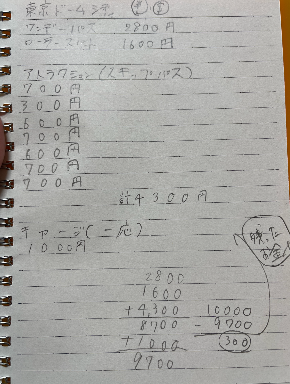 東京ドーム
ワンデーパス 2800円
1600円
アトラクション(スキップパス)
700円
300円
600円
700円
600円
700円
700円
計4300円
チャージ(一応)
1000円
残った
お金
2800
1600
+4,300 10000
8700 - 9700
+1000 300
9700